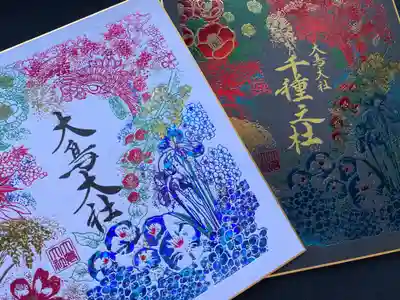 大鳥大社
大鳥大社
千種之杜